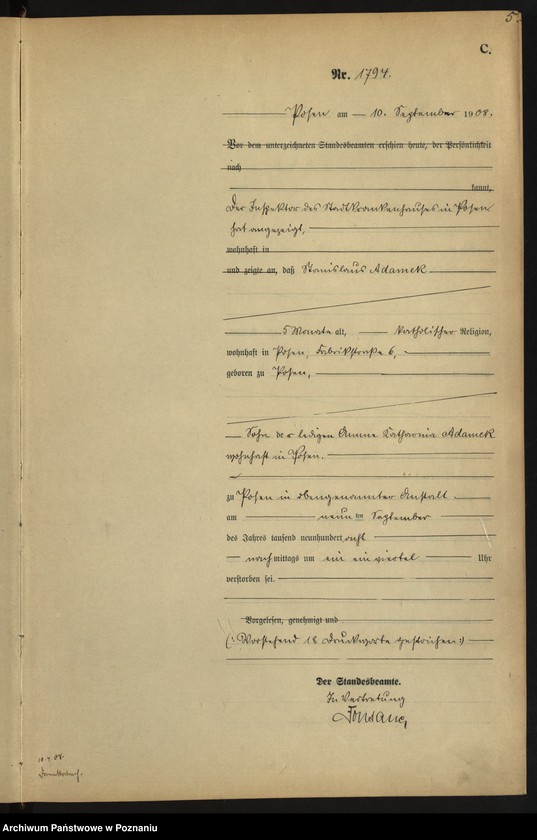 5
C.
Nr. 1794.
Posen am 10. September 1908.
Vor dem unterzeichneten Standesbeamten erschien heute, der Persönlichkeit
nach
kannt,
Der Inspektor des Stadtkrankenhauses in Posen
hat angezeigt,
wohnhaft in
und zeigte an, daß Stanislaus Adamek
5 Monate alt, katholischer Religion,
wohnhaft in Posen, Fabrikstraße 6,
geboren zu Posen,
Sohn der ledigen Amme Katharina Adamek
wohnhaft in Posen.
zu Posen in obengenannter Anstalt
am neunten September
des Jahres tausend neunhundert acht
nachmittags um ein einviertel Uhr
verstorben sei.
Vorgelesen, genehmigt und
(: Vorstehend 18 Druckworte gestrichen :)
Der Standesbeamte.
In Vertretung
Archiwum Państwowe w Poznaniu